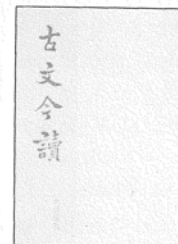 古文今讀